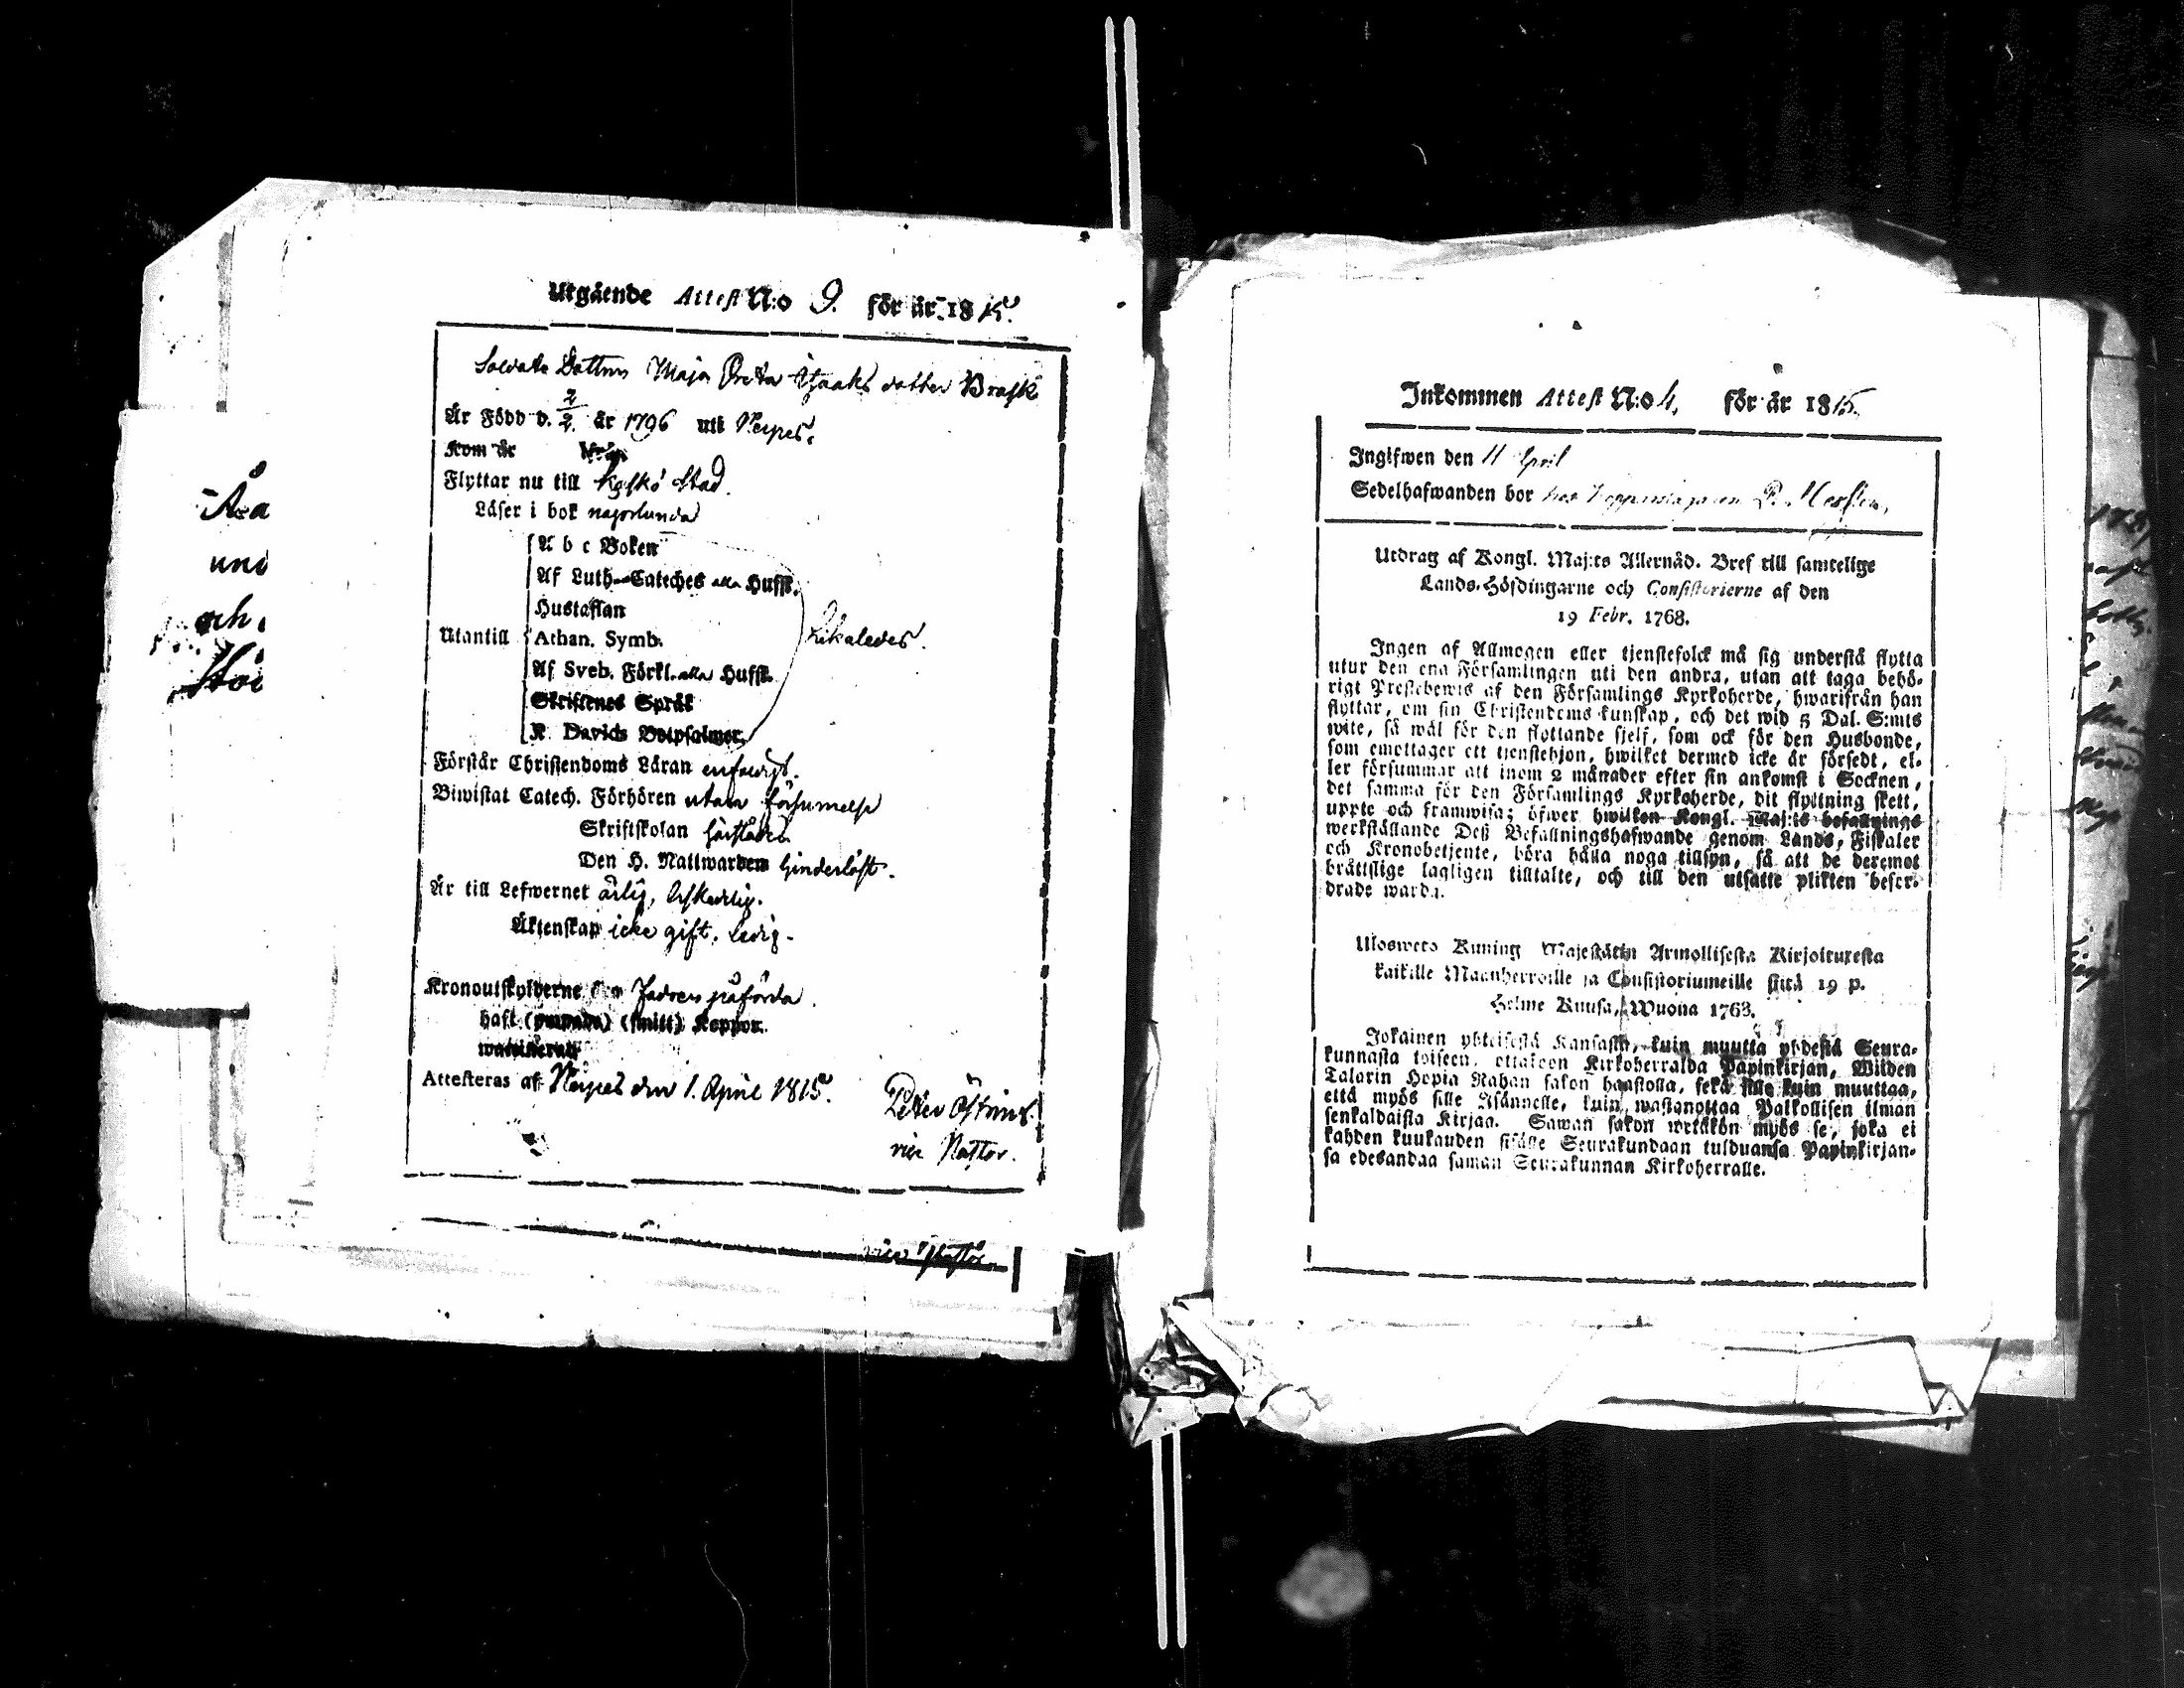 Utgående Attest N:o 9. för år 1815.
Soldats Dottren Maja Greta Isaaks dotter Brask
År Född d. 2/2 år 1796 uti Nerpes.
Kom år
Flyttar nu till Kaskö Stad.
Läser i bok någorlunda
A b c Boken
Af Luth Cateches alla Hufst.
Hustaflan
Utantill Athan. Symb. Likaledes.
Af Sveb. Förkl. alla Hufst.
Skriftenes Språk
K. Davids Botpsalmer.
Förstår Christendoms Läran enfaldigt.
Biwistat Catech. Förhören utan försumelse
Skriftskolan
Den H. Nattwarden hinderlöst.
Är till Lefwernet ärlig, beskedlig.
Äktenskap icke gift. Ledig.
Kronoutskylderne påförda.
haft (smitt) Koppor.
Attesteras af Nerpes den 1. April 1815.
Peter
vice Pastor.
vice Pastor.
Åa
und
och
Inkommen Attest N:o 4. för år 1815.
Ingifwen den 11 April
Sedelhafwanden bor hos
Utdrag af Kongl. Maj:ts Allernåd. Bref till samtelige
Lands-Höfdingarne och Consistorierne af den
19 Febr. 1768.
Ingen af Allmogen eller tjenstefolck må sig understå flytta
utur den ena Församlingen uti den andra, utan att taga behö-
rigt Prestebewis af den Församlings Kyrkoherde, hwarifrån han
flyttar, om sin Christendoms kunskap, och det wid 5 Dal. S:mts
wite, så wäl för den flyttande sjelf, som ock för den Husbonde,
som emottager ett tjenstehjon, hwilket dermed icke är försedt, el-
ler försummar att inom 2 månader efter sin ankomst i Socknen,
det samma för den Församlings Kyrkoherde, dit flyttning skett,
uppte och framwisa; öfwer hwilken Kongl. Maj:ts befallnings
werkställande Deß Befallningshafwande genom Lands, Fiskaler
och Kronobetjente, böra hålla noga tillsyn, så att de deremot
bråttslige lagligen tilltalte, och till den utsatte plikten befor-
drade warda.
Ulosweto Kuning Majestätin Armollisesta Kirjoituxesta
kaikille Maanherroille ja Consistoriumeille siitä 19 p.
Helme Kuusa, Wuona 1768.
Jokainen yhteisestä Kansasta, kuin muutta yhdestä Seura-
kunnasta toiseen, ottakoon Kirkoherralda Papinkirjan, Wiiden
Talarin Hopia Rahan sakon haastolla, sekä sille kuin muuttaa,
että myös sille Isännelle, kuin wastanottaa Palkollisen ilman
senkaldaista Kirjaa. Saman sakon wetäkön myös se, joka ei
kahden kuukauden sisälle Seurakundaan tulduansa Papinkirjan-
sa edesandaa saman Seurakunnan Kirkoherralle.